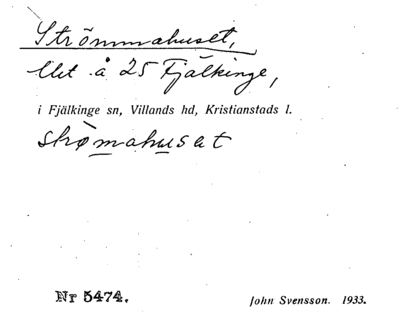 Strömmahuset,
Ut å 25 Fjälkinge,
i Fjälkinge sn, Villands hd, Kristianstads l.
strømahuset
Nr 5474.
John Svensson. 1933.